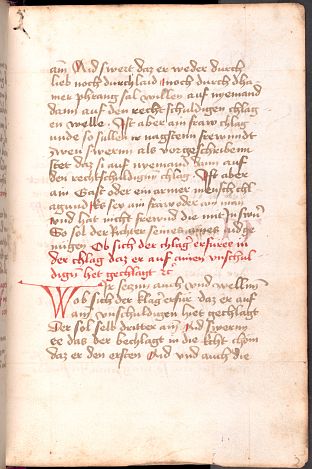 ain Aid swert daz er weder durch
lieb noch durch laid noch durch dha
mer phrang sal wellen auf nyemand
dann auf den recht schuldigen chlag
en welle. Ist aber ain fraw chlag
unde so sullen ir nagstenn frewnndt
zwen swernn als vor geschribenn
stet daz si auf nyemand dann auf
den rechtschuldigen chlag. Ist aber
ain Gast oder ein armer mensch chl
ain fraw oder ain man
und hat nicht frewnd die mit
So sol der Richter seines aides
nemen Ob sich der chlager erfure in
der chlag daz er auf ainen unschul
digen het gechlagt
Wir setzen auch und wellnn
ob sich der klager erfür daz er auf
ain unschuldigen hiet gechlagt
Der sol selb dritter ain Aid swernn
ee daz der bechlagt in die Echt chom
daz er den ersten Aid und auch die